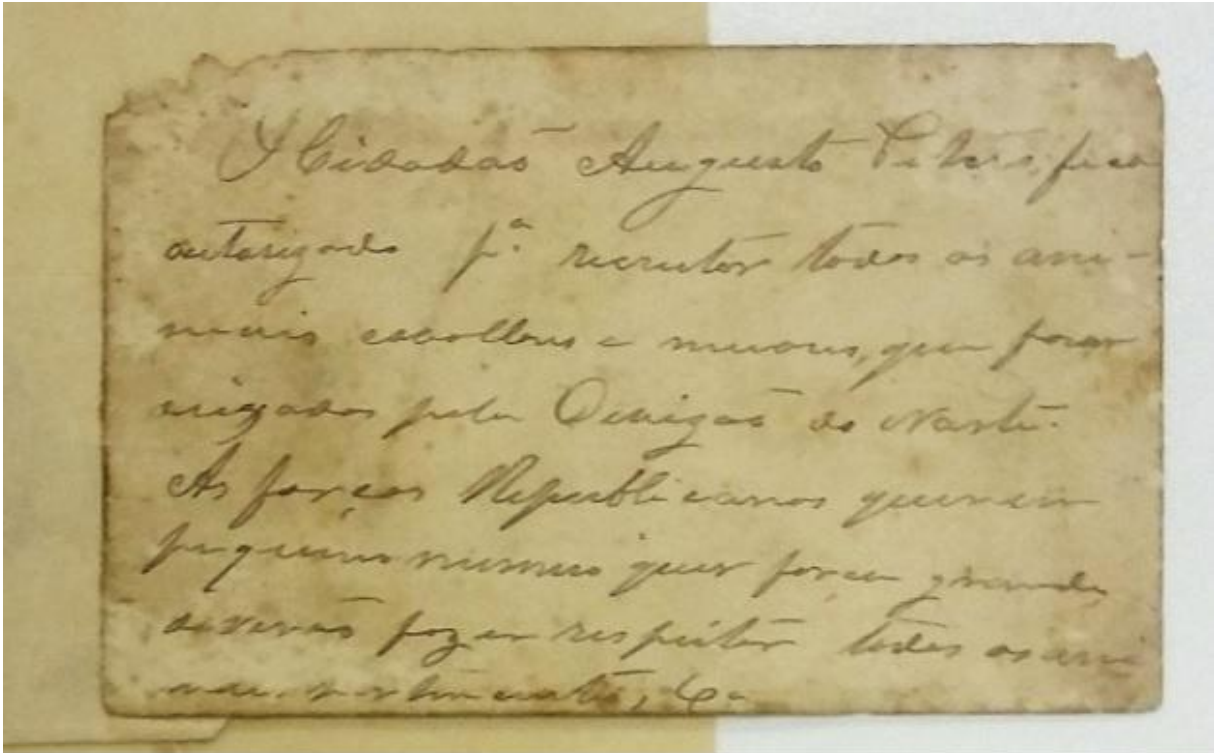 O Cidadão Augusto Peters, fica
autorizado pª. recrutar todos os ani-
maes cavallares e muares, que foram
pela Divizão do Norte.
As forças Republicanas quer em
pequeno numero quer força grande,
deverão fazer respeitar todos os ani